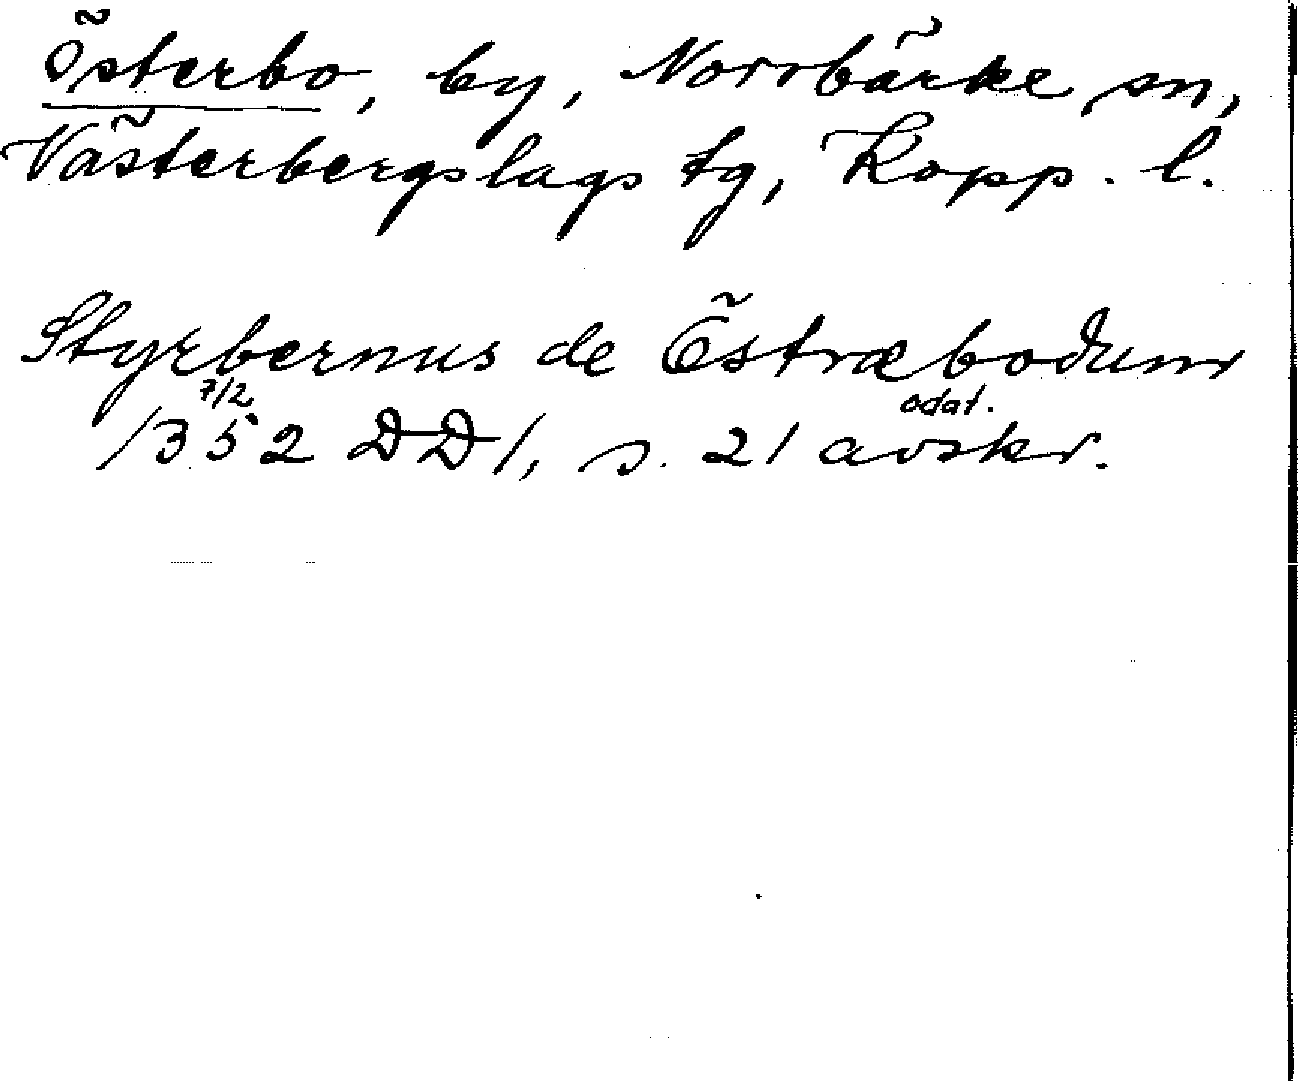 Österbo, by, Norrbärke sn,
Västerbergslags tg, Kopp. l.
Styrbernus de Östræbodum
7/2 odat.
1352 DD1, s. 21 avskr.